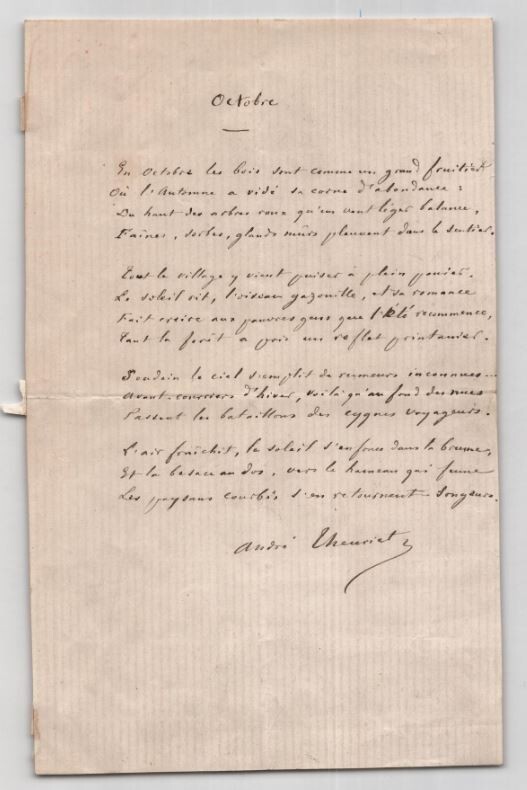 Octobre
En Octobre les bois sont comme un grand fruitier
Où l'Automne a vidé sa corne d'abondance :
Du haut des arbres roux qu'un vent léger balance,
Faînes, sorbes, glands mûrs pleuvent dans le sentier.
Tout le village y vient puiser à plein panier.
Le soleil rit, l'oiseau gazouille, et sa romance
Fait croire aux pauvres gens que l'Été recommence,
Tant la forêt a pris un reflet printanier.
Soudain le ciel s'emplit de rumeurs inconnues...
Avant-courriers d'hiver, voilà qu'au fond des nues
Passent les bataillons des cygnes voyageurs.
L'air fraîchit, le soleil s'enfonce dans la brume,
Et la besace au dos, vers le hameau qui fume
Les paysans courbés s'en retournent songeurs.
André Theuriet